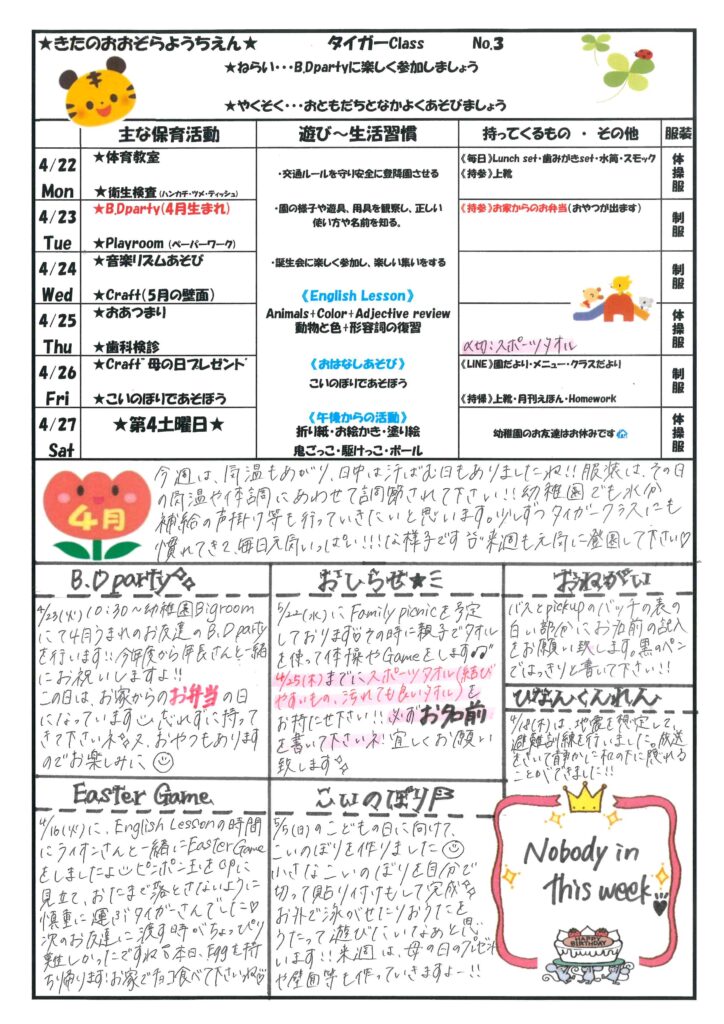 ★きたのおおぞらようちえん★ タイガーClass No.3
★ねらい・・・B.Dpartyに楽しく参加しましょう
★やくそく・・・おともだちとなかよくあそびましょう
主な保育活動 遊び～生活習慣 持ってくるもの ・ その他 服装
4/22 Mon
★体育教室
★衛生検査(ハンカチ・ツメ・ティッシュ)
・交通ルールを守り安全に登降園させる
《毎日》Lunch set・歯みがきset・水筒・スモック
《持参》上靴
体操服
4/23 Tue
★B.Dparty(4月生まれ)
★Playroom (ペーパーワーク)
・園の様子や遊具、用具を観察し、正しい
使い方や名前を知る。
《持参》お家からのお弁当(おやつが出ます)
制服
4/24 Wed
★音楽リズムあそび
★Craft(5月の壁面)
・誕生会に楽しく参加し、楽しい集いをする
《English Lesson》
制服
4/25 Thu
★おあつまり
★歯科検診
Animals+Color+Adjective review
動物と色+形容詞の復習
〆切:スポーツタオル
体操服
4/26 Fri
★Craft 母の日プレゼント
★こいのぼりであそぼう
《おはなしあそび》
こいのぼりであそぼう
《LINE》園だより・メニュー・クラスだより
《持帰》上靴・月刊えほん・Homework
制服
4/27 Sat
★第4土曜日★
《午後からの活動》
折り紙・お絵かき・塗り絵
鬼ごっこ・駆けっこ・ボール
幼稚園のお友達はお休みです
体操服
4月
今週は、気温もあがり、日中は汗ばむ日もありましたね!!服装は、その日
の気温や体調にあわせて調節されて下さい!!幼稚園でも水分
補給の声掛け等も行っていきたいと思います。少しずつタイガークラスにも
慣れてきて、毎日元気いっぱい!!!な様子です 来週も元気に登園して下さい♡
B.Dparty
4/23(火)10:30～幼稚園Bigroom
にて4月うまれのお友達のB.Dparty
を行います!!今年度から年長さんと一緒
にお祝いしますよ!!
この日は、お家からのお弁当の日
になっています 忘れずに持って
きて下さいネ。又、おやつもあります
のでお楽しみに
おしらせ★ミ
5/22(水)にFamily picnicを予定
しております その時に親子でタオル
を使って体操やGameをします♪
4/25(木)までにスポーツタオル(結び
やすいもの、汚れても良いタオル)を
お持たせ下さい!!必ずお名前
を書いて下さいネ!宜しくお願い
致します
おねがい
バスとpickupのバッチの表の
白い部分にお名前の記入
をお願い致します。黒のペン
ではっきりと書いて下さい!!
ひなんくんれん
4/18(木)は、地震を想定して、
避難訓練を行いました。放送
をきいて静かに机の下に隠れる
ことができました!!
Easter Game
4/16(火)に、English Lessonの時間
にライオンさんと一緒にEasterGame
をしましたよ ピンポン玉をeggに
見立て、おたまで落とさないように
慎重に運ぶタイガーさんでした♡
次のお友達に渡す時がちょっぴり
難しかったですね 本日、Eggを持
ち帰ります!お家でチョコ食べて下さいね♡
こいのぼり
5/5(日)のこどもの日に向けて、
こいのぼりを作りました
小さなこいのぼりを自分で
切って貼り付けもして完成
お外で泳がせたりおうたを
うたって遊びたいなあと思
います!!来週は、母の日のプレゼント
や壁面等も作っていきますよー!!
Nobody in
this week
HAPPY
BIRTHDAY